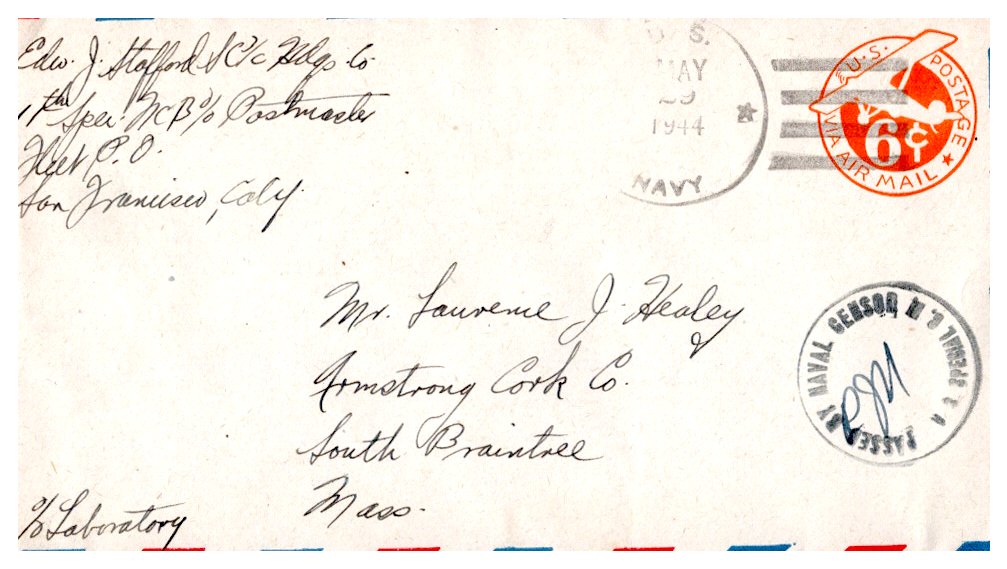 Edw. J. Stafford S 1/c Hdqs. Co.
17th Spec. N C B c/o Postmaster
Fleet P. O.
San Francisco, Calif.
U. S.
MAY
29
1944
NAVY
U.S. POSTAGE
VIA AIR MAIL
6¢
Mr. Laurence J. Healey
Armstrong Cork Co.
South Braintree
Mass.
c/o Laboratory
PASSED BY NAVAL CENSOR